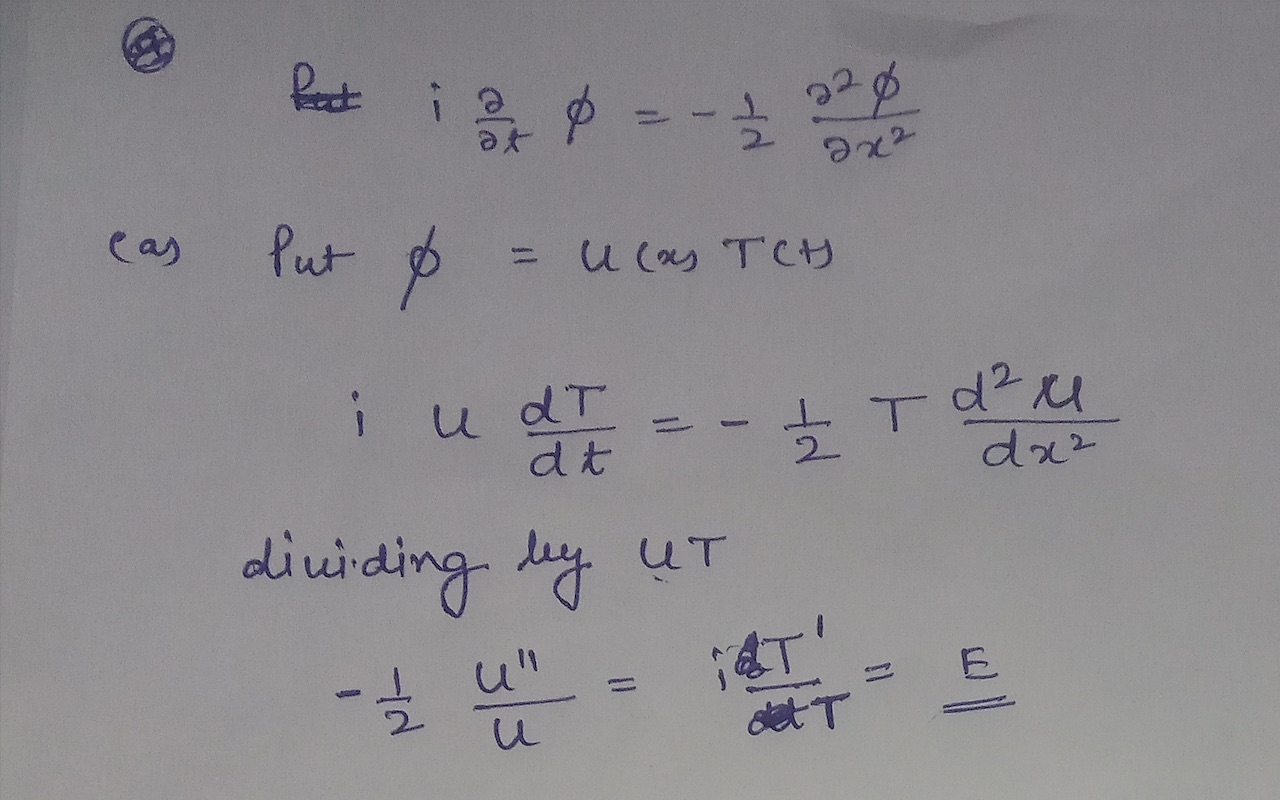 i ∂/∂t ϕ = - 1/2 ∂²ϕ/∂x²
(a) Put ϕ = u(x) T(t)
i u dT/dt = - 1/2 T d²u/dx²
dividing by uT
- 1/2 u''/u = i T'/T = E